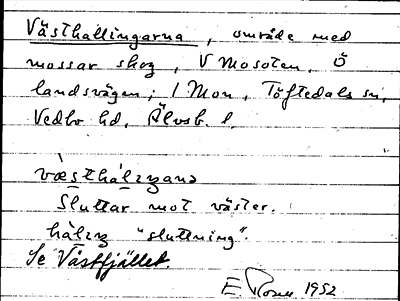 Västhällingarna, område med
mossar skog, V Mosoten, Ö
landsvägen; i Mon, Töftedals sn,
Vedbo hd, Älvsb. l.
Sluttar mot väster.
"sluttning".
Se Västfjället.
E Rosen 1952